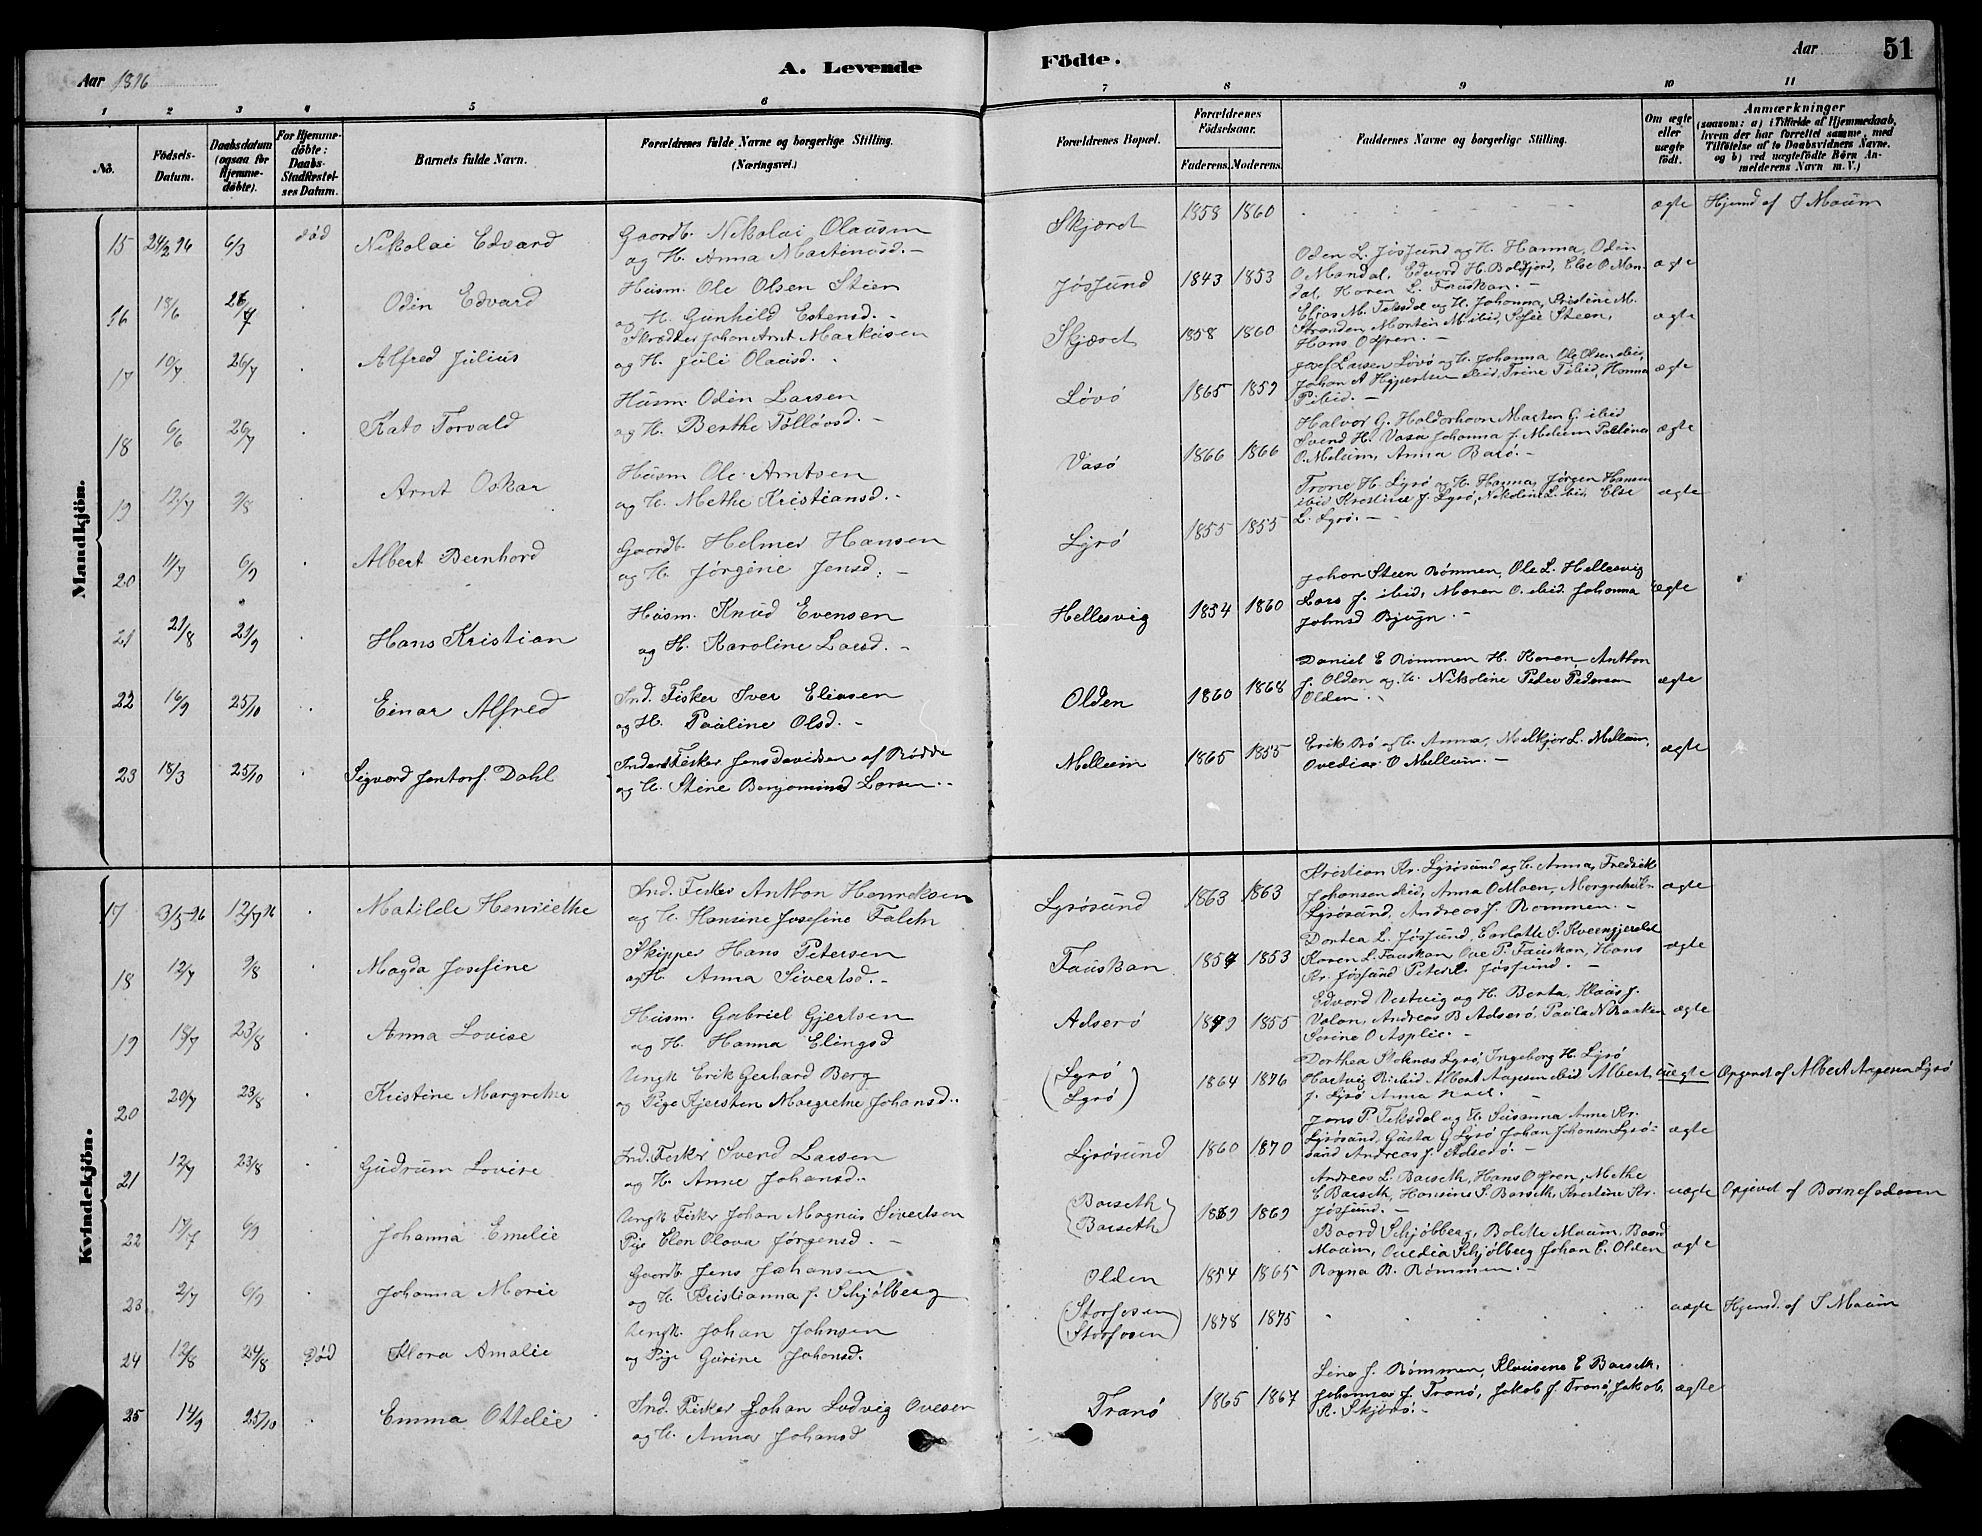 Aar 1896
A. Levende
Födte.
Aar
51
1 2 3 4 5 6 7 8 9 10 11
No.
Födsels-Datum.
Daabsdatum (ogsaa for Hjemmedöbte).
For Hjemmedöbte: Daabs-Stadfæstelses Datum.
Barnets fulde Navn.
Forældrenes fulde Navne og borgerlige Stilling.
(Næringsvei.)
Forældrenes Bopæl.
Forældrenes Födselsaar.
Faderens. Moderens.
Faddernes Navne og borgerlige Stilling.
Om ægte eller uægte födt.
Anmærkninger
(saasom: a) i Tilfælde af Hjemmedaab,
hvem der har forrettet samme, med
Tilföielse af to Daabsvidners Navne.
og b) ved uægtefödte Börn Anmelderens Navn m.V.)
Mandkjön.
15 24/2 96 6/3 död Nikolai Edvard
Gaardb. Nikolai Olausen
og H. Anna Martinusd. -
Skjæret 1858 1860 ægte Hjemd af S Maum
16 18/6 26/7 Odin Edvard
Husm. Ole Olsen Steen
og H. Gunhild Estensd. -
Jøssund 1843 1853
Oden L. Jøssund og H. Hanna, Odin
O Mandal, Edvard H. Boldfjord, Else O Mandal, Karen L. Fauskan. -
ægte
17 10/7 26/7 Alfred Julius
Skrædder Johan Arnt Markusen
og H. Juli Olausd. -
Skjæret 1858 1860
Elias M. Teksdal og H. Johanna, Kristine M.
Stranden, Morten M. ibid, Sofie Steen,
Hans Offren. -
ægte
18 6/6 26/7 Kato Torvald
Husm. Odin Larsen
og H. Berthe Tølløvsd. -
Løvø 1865 1859
Josef Larsen Løvø og H. Johanna Ole Olsen ibid,
Johan A ibid, Trine P ibid, Hanna
P ibid. -
ægte
19 12/7 9/8 Arnt Oskar
Husm Ole Arntsen
og H. Methe Kristiansd. -
Vasø 1866 1866
Halvor G. Halderhavn Marten G. ibid
Svend H. Vasø Johanna J. Melum Pauline
O. Melum, Anna Barø. -
ægte
20 11/7 6/9 Albert Bernhard
Gaardb. Helmer Hansen
og H. Jørgine Jensd. -
Lyrø 1855 1855
Trone H. Lyrø og H. Hanna, Jørgen Hansen
ibid Kristine J. Lyrø, Nikoline L. ibi, Else
L. Lyrø. -
ægte
21 21/8 21/9 Hans Kristian
Husm. Knud Evensen
og H. Karoline Larsd. -
Hellesvig 1854 1860
Johan Steen Rømmen, Ole L. Hellesvig
Lars J. ibid, Maren O. ibid. Johanna
Johnsd Bjugn. -
ægte
22 16/9 25/10 Einar Alfred
Ind. Fisker Iver Eliasen
og H. Pauline Olsd. -
Olden 1860 1868
Daniel E Rømmen H. Karen, Anthon
J. Olden og H. Nikoline Peder Pedersen
Olden. -
ægte
23 18/3 25/10 Sigvard Jentorf. Dahl
Inderst Fisker Jens Davidsen af Rødde
og H. Stine Benjaminsd Larsen. -
Mellum 1865 1855
Erik Rø og H. Anna, Melkjor L. Mellum,
Ovedia O Mellum. -
ægte
Kvindekjön.
17 3/5 96 12/7 96 Matilde Henriette
Ind. Fisker Anthon Henriksen
og H. Hansine Josefine Falch
Lysøsund 1863 1863
Kristian Kr. Lysøsund og H. Anna, Fredrik
Johansen ibid, Anna O Moen, Margrethe
Lysøsund, Andreas J. Rømmen. -
ægte
18 12/7 9/8 Magda Josefine
Skipper Hans Petersen
og H. Anna Sivertsd. -
Fauskan 1857 1853
Dortea L. Jøssund, Carlotte S. Kveengjerdet
Karen L. Fauskan Ove P. Fauskan, Hans
Kr. Jøssund Peter L. Jøssund. -
ægte
19 18/7 23/8 Anna Lovise
Husm. Gabriel Gjertsen
og H. Hanna Elingsd
Adserø 1849 1855
Edvard Vestvig og H. Berta, Klaus J.
Valan, Andreas B. Adserø, Paula N. Raaken
Serine O Asplie. -
ægte
20 20/7 23/8 Kristine Margrethe
Ungk Erik Gerhard Berg
og Pige Kjersten Margrethe Johansd. -
(Lyrø
Lyrø) 1864 1876
Dorthea Stoknes Lyrø, Ingeborg H. Lyrø
Hartvig R. ibid. Albert Aagesen ibid Albert
J. Lyrø Anna
uægte Opgivet af Albert Aagesen Lyrø
21 12/7 23/8 Gudrum Lovise
Ind. Fisker Svend Larsen
og H. Anne Johansd. -
Lysøsund 1860 1870
Jens P. Teksdal og H. Susanna Anne Kr.
Lysøsund, Gusta G Lyrø Johan Johansen Lysøsund Andreas J. Adserø. -
ægte
22 17/7 6/9 Johanna Emelie
Ungk Fisker Johan Magnus Sivertsen
Pige Elen Olava Jørgensd. -
(Barseth
Barseth) 1869 1869
Andreas L. Barseth, Hans Offren, Methe
E Barseth, Hansine S. Barseth Kristine Kr.
Jøssund. -
uægte Opgivet af Barnefaderen
23 2/7 6/9 Johanna Marie
Gaardb. Jens Johansen
og H. Kristianna J. Schjølberg
Olden 1854 1865
Baard Schjølberg, Bolette Maum, Baard
Maum, Ovedia Schjølberg Johan E. Olden
Ragna B. Rømmen. -
ægte
24 12/8 24/8 Död Klara Amalie
Ungk. Johan Johnsen
og Pige Gurine Johansd. -
(Storfosen
Storfosen) 1878 1875
uægte Hjemd. af S Maum
25 14/9 25/10 Emma Ottelie
Ind. Fisker Johan Ludvig Ovesen
og H. Anna Johansd
Tranø 1865 1867
Lina J. Rømmen, Klausine E Barseth,
Johannes J. Tranø, Jakob J. Tranø, Jakob
A. Skjærø. -
ægte